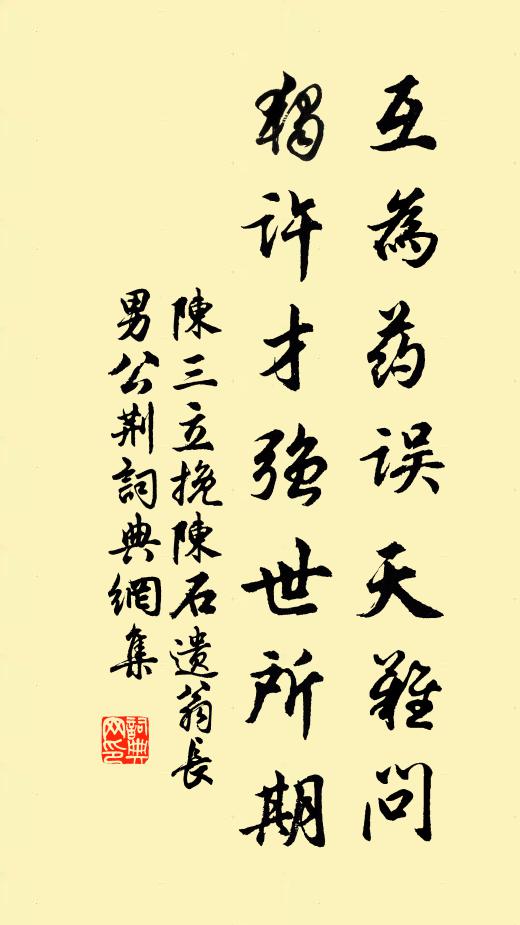 互為药误天難问
獨许才強世所期
陳三立挽陳石遺翁長
男公荆詞典網集
詞典網印